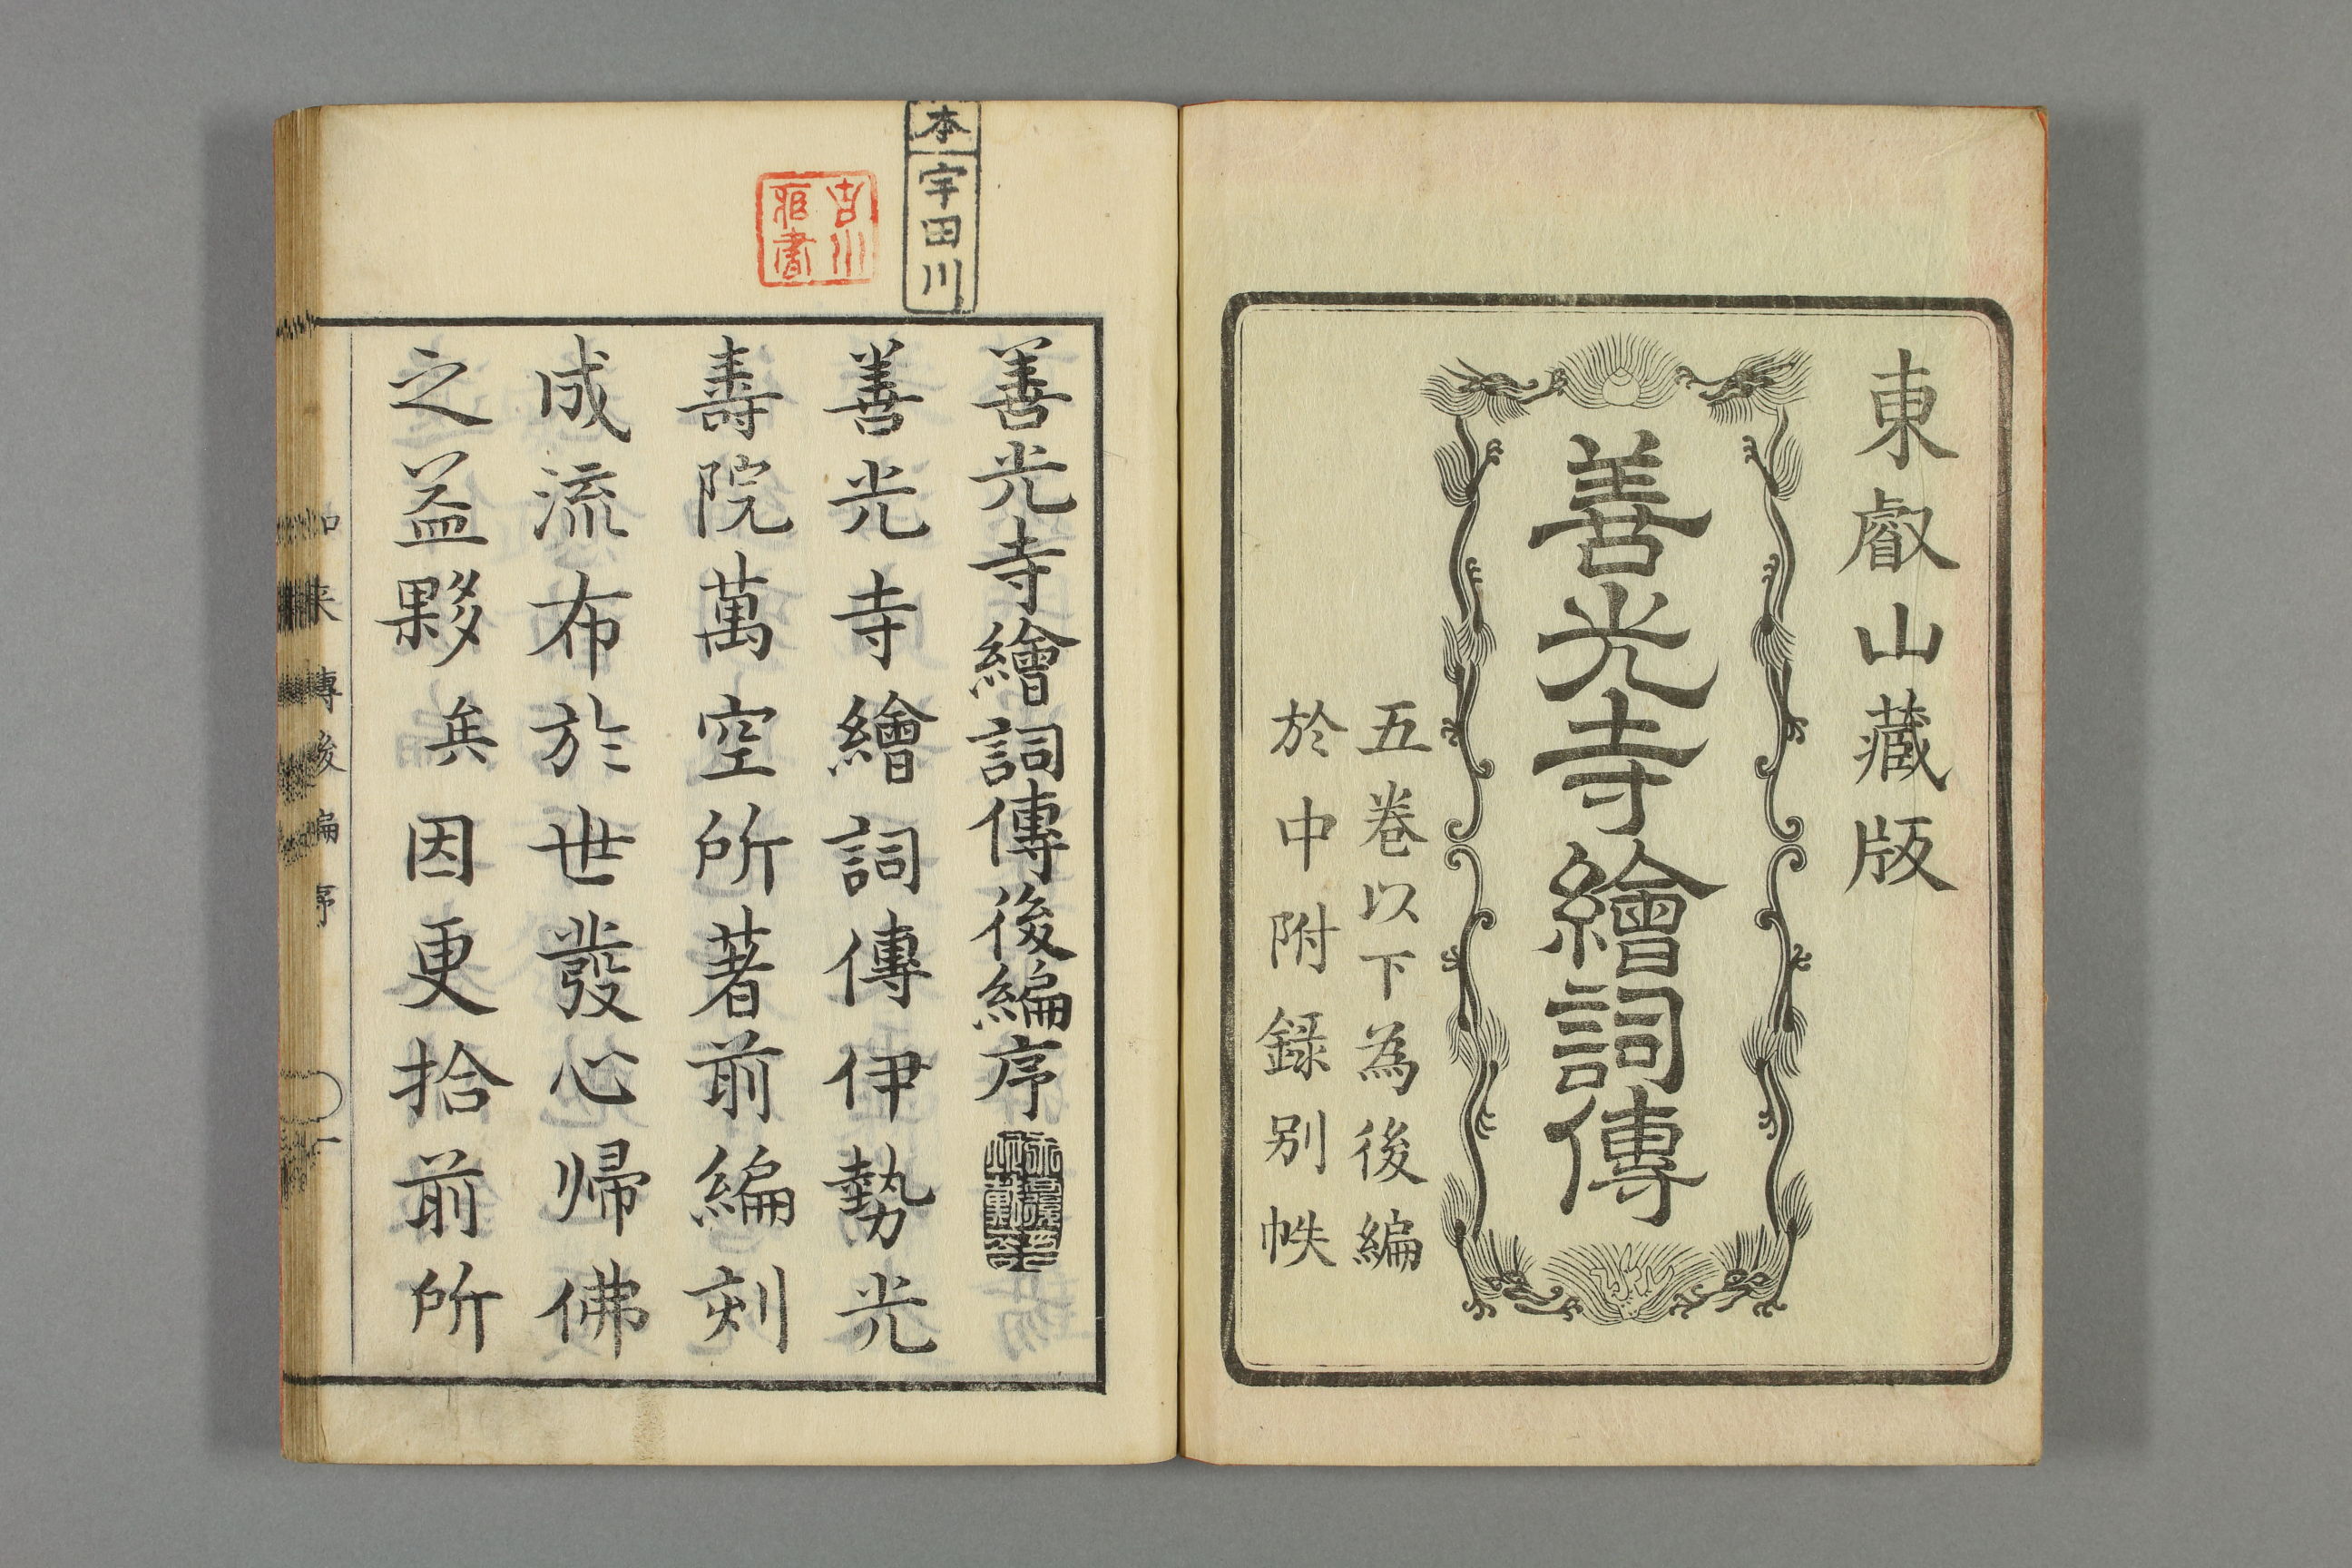 東叡山藏版
善光寺繪詞傳
五卷以下為後編
於中附録別帙
本
宇田川
善光寺繪詞傳後編序
善光寺繪詞傳伊勢光
壽院萬空所著前編刻
成流布於世發心帰佛
之益夥矣因更拾前所
如来傳後編序
一